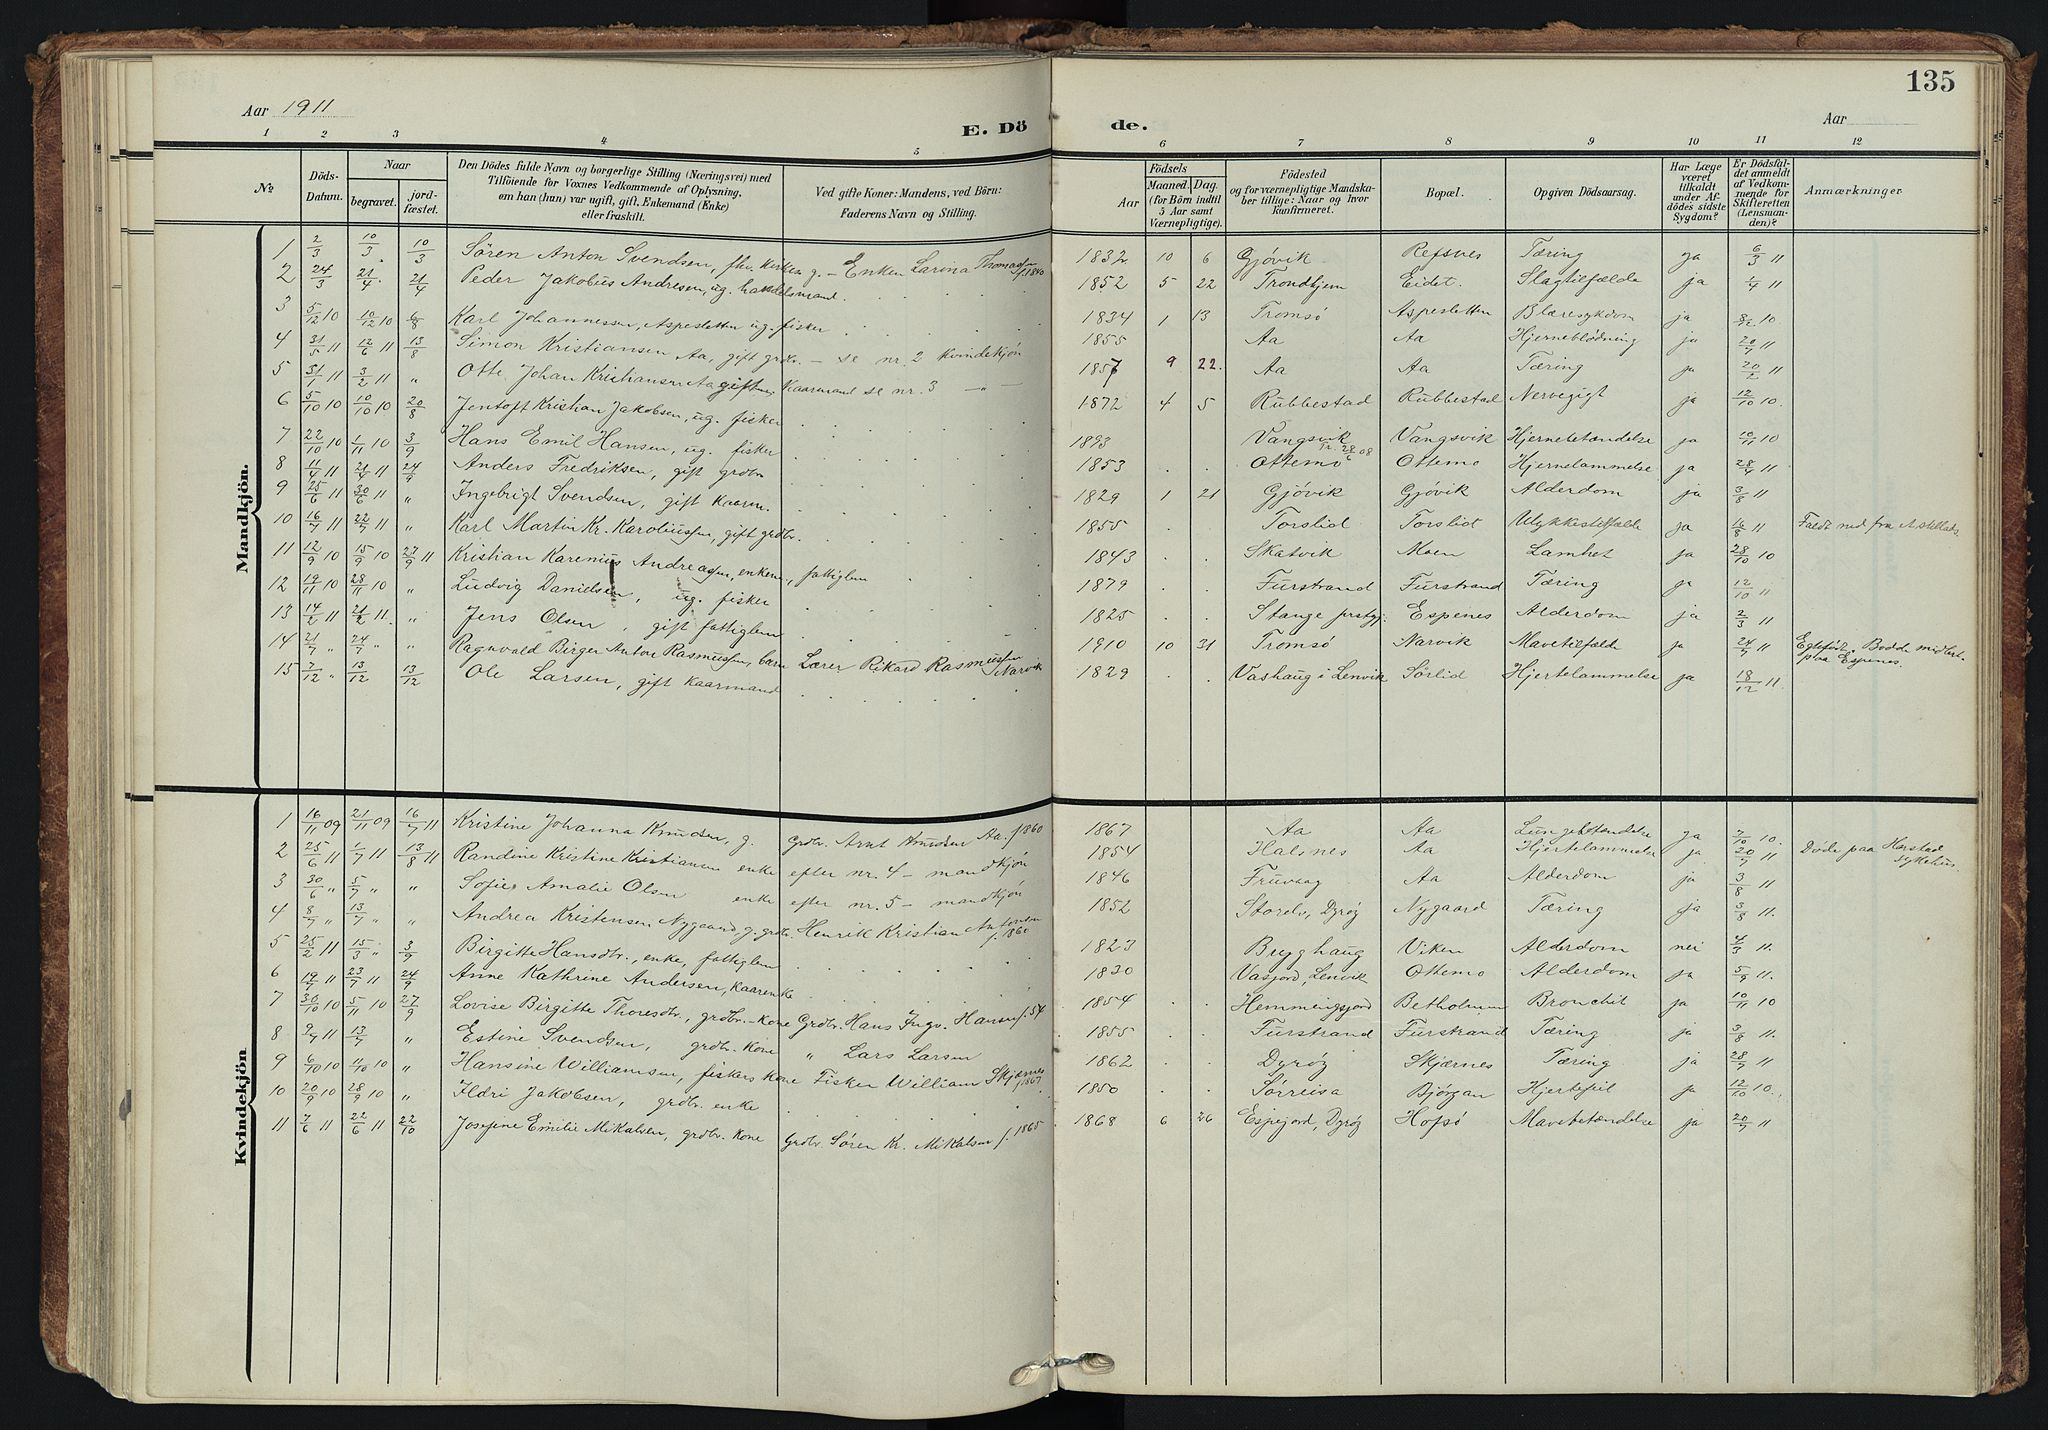 135
Aar 1911
Aar
E. Dö de.
1 2 3 4 5 6 7 8 9 10 11 12
No. Döds-Datum. Naar begravet. jordfæstet. Den Dödes fulde Navn og borgerlige Stilling (Næringsvei) med Tilföiende for Voxnes Vedkommende af Oplysning, om han (hun) var ugift, gift, Enkemand (Enke) eller fraskilt. Ved gifte Koner: Mandens, ved Börn: Faderens Navn og Stilling. Födsels Aar Maaned. Dag. (for Börn indtil 5 Aar samt Værnepligtige). Födested og for værnepligtige Mandskaber tillige: Naar og hvor konfirmeret. Bopæl. Opgiven Dödsaarsag. Har Læge været tilkaldt under Afdödes sidste Sygdom? Er Dödsfaldet anmeldt af Vedkommende for Skifteretten (Lensmanden)? Anmærkninger
Mandkjön.
1 2/3 10/3 10/3 Sören Anton Svendsen, fhv. g. – Enken Larina Thomasen f. 1840 1832 10 6 Gjövik Refsnes Tæring ja 6/3 11
2 24/3 21/4 21/4 Peder Jakobius Andresen, ug. handelsmand 1852 5 22 Trondhjem Eidet. Slagtilfælde ja 1/4 11
3 5/12 10 10/12 10 6/8 Karl Johannessen, Aspesletten ug. fisker 1834 1 13 Tromsö Aspesletten Blæresykdom ja 8/12 10
4 31/5 11 12/6 11 13/8 Simon Kristiansen Aa, gift grdbr. – se nr. 2 kvindekjön 1855 Aa Aa Hjerneblödning ja 20/7 11
5 31/1 11 3/2 11 " Otte Johan Kristiansen Aa gift kaarmand se nr. 3 – " – 1857 9 22. Aa Aa Tæring ja 20/2 11
6 5/10 10 10/10 10 20/8 Jentoft Kristian Jakobsen, ug. fisker 1872 4 5 Rubbestad Rubbestad Nervegigt ja 12/10 10.
7 22/10 10 1/11 10 3/9 Hans Emil Hansen, ug. fisker 1893 Vangsvik Vangsvik Hjernebetændelse ja 10/11 10
8 11/4 11 21/4 11 24/9 Anders Fredriksen, gift grdbr 1853 Ottemo Ottemo Hjernelammelse ja 28/4 11
9 25/6 11 30/6 11 " Ingebrigt Svendsen, gift kaarm. 1829 1 21 Gjövik Gjövik Alderdom ja 3/8 11
10 16/7 11 22/7 11 " Karl Martin Kr. Karoliussen, gift grdbr. 1855 Torslid Torslid Ulykkestilfælde ja 16/8 11 Faldt ned fra
11 12/9 10 15/9 10 27/9 11 Kristian Karenius Andreassen, enkem., fattiglem 1843 Skatvik Moen Lamhet ja 28/10 10
12 19/11 10 28/11 10 " Ludvig Danielsen, ug. fisker 1879 Furstrand Furstrand Tæring ja 12/10 11
13 14/2 11 21/2 11. " Jens Olsen, gift fattiglem 1825 Stange prstgj. Espenes Alderdom ja 2/3 11
14 21/7 " 24/7 " " Ragnvald Birger Anton Rasmussen, barn Lærer Rikard Rasmussen Narvik 1910 10 31 Tromsö Narvik Mavetilfælde ja 24/7 11 Egtefödt. Bodde midlert. paa Espenes.
15 7/12 " 13/12 13/12 Ole Larsen, gift kaarmand 1829 Vashaug i Lenvik Sörlid Hjertelammelse ja 18/12 11.
Kvindekjön
1 16/11 09 21/11 09 16/7 11 Kristine Johanna Knudsen, g. Grdbr. Arnt Knudsen Aa. f. 1860 1867 Aa Aa Lungebetændelse ja 7/10 10.
2 25/6 11 1/7 11 13/8 11 Randine Kristine Kristiansen enke efter nr. 4 – mandkjön 1854 Halsnes Aa Hjertelammelse ja 20/7 11 Döde paa Harstad sykehus.
3 30/6 " 5/7 " " Sofie Amalie Olsen enke efter nr. 5 – mandkjön 1846 Truvaag Aa Alderdom ja 3/8 11
4 8/7 " 13/7 " " Andrea Kristensen Nygaard, g. grdbr. Henrik Kristian Antonsen f. 1860 1852 Storelv, Dyröy Nygaard Tæring ja 3/8 11.
5 25/2 11 15/3 " 3/9 Birgitte Hansdtr., enke, fattiglem 1823 Bryghaug Viken Alderdom nei 4/3 11.
6 19/7 11 23/7 11 24/9 Anne Kathrine Andersen, kaarenke 1830 Vasjord, Lenvik Ottemo Alderdom ja 5/9 11.
7 30/10 10 5/11 10 27/9 Lovise Birgitte Thoresdtr., grdbr.-kone Grdbr. Hans Ingv. Hansen f. 54 1854 Hemmingsjord Betholmen Bronchit ja 10/11 10
8 9/7 11 13/7 " Estine Svendsen, grdbr. kone " Lars Larsen 1855 Furstrand Furstrand Tæring ja 3/8 11.
9 6/10 10 11/10 10 " Hansine Williamsen, fiskers kone Fisker William Skjærnes f. 1867 1862 Dyröy Skjærnes Tæring ja 28/7 11
10 20/9 10 28/9 10 " Ildri Jakobsen, grdbr. enke 1850 Sörreisa Björgan Hjertefeil ja 12/10 10.
11 7/6 11 22/6 11 22/10 Josefine Emilie Mikalsen, grdbr. kone Grdbr. Sören Kr. Mikalsen f. 1865 1868 6 26 Espejord, Dyröy Hofsö Mavebetændelse ja 20/7 11